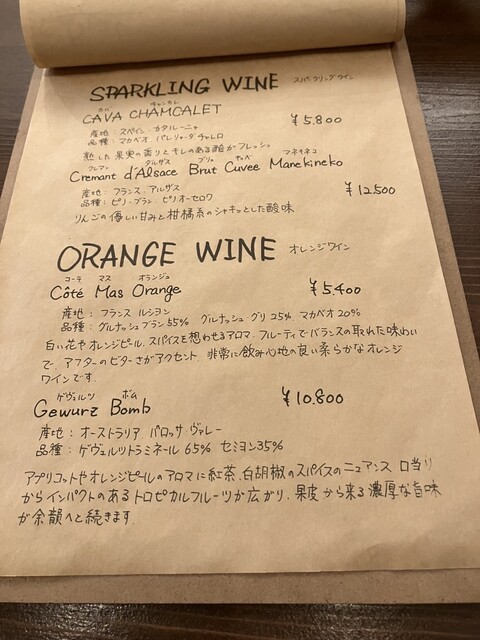 SPARKLING WINE スパークリングワイン
カバ チャムカレ
CAVA CHAMCALET ¥5.800
産地：スペイン カタルーニャ
品種：マカベオ パレリャーダ チャレロ
熟した果実の香りとキレのある酸がフレッシュ
クレマン ダルザス ブリュ キュベ マネキネコ
Cremant d'Alsace Brut Cuvee Manekineko
産地：フランス アルザス ¥12.500
品種：ピノ・ブラン ピノ・オーセロワ
りんごの優しい甘みと柑橘系のシャキっとした酸味
ORANGE WINE オレンジワイン
コーテ マス オランジュ
Côté Mas Orange ¥5.400
産地：フランス ルシヨン
品種：グルナッシュブラン55% グルナッシュグリ25% マカベオ20%
白い花やオレンジピール、スパイスを想わせるアロマ。フルーティでバランスの取れた味わい
で、アフターのビターさがアクセント。非常に飲み心地の良い柔らかなオレンジ
ワインです。
ゲヴェルツ ボム
Gewurz Bomb ¥10.800
産地：オーストラリア バロッサ・ヴァレー
品種：ゲヴェルツトラミネール 65% セミヨン35%
アプリコットやオレンジピールのアロマに紅茶、白胡椒のスパイスのニュアンス。口当り
からインパクトのあるトロピカルフルーツが広がり、果皮から来る濃厚な旨味
が余韻へと続きます。